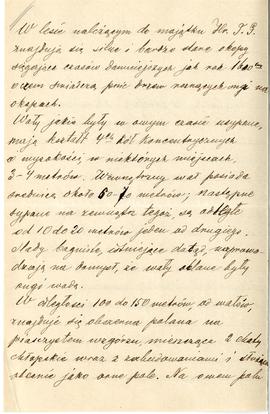 W lesie należącym do majątku Hr. T. G.
znajdują się silne i bardzo stare okopy
sięgające czasów dawniejszych jak rok 1600
o czem świadczą pnie drzew rosnących na
okopach.
Wały jakie były w owym czasie usypane,
mają kształt 4ch kół koncentrycznych
o wysokości w niektórych miejscach
3-4 metrów. Wewnętrzny wał posiada
średnicę około 60-70 metrów; następne
sypane na zewnątrz tegoż, są odległe
od 10 do 20 metrów jeden od drugiego.
Ślady bagniste, istniejące dotąd, naprowa-
dzają na domysł, że wały oblane były
ongi wodą.
W odległości 100 do 150 metrów, od wałów,
znajduje się obszerna polana na
piaszczystem wzgórzu, mieszcząca 2 chaty
chłopskie wraz z zabudowaniami i
obecnie jako orne pole. Na owem polu